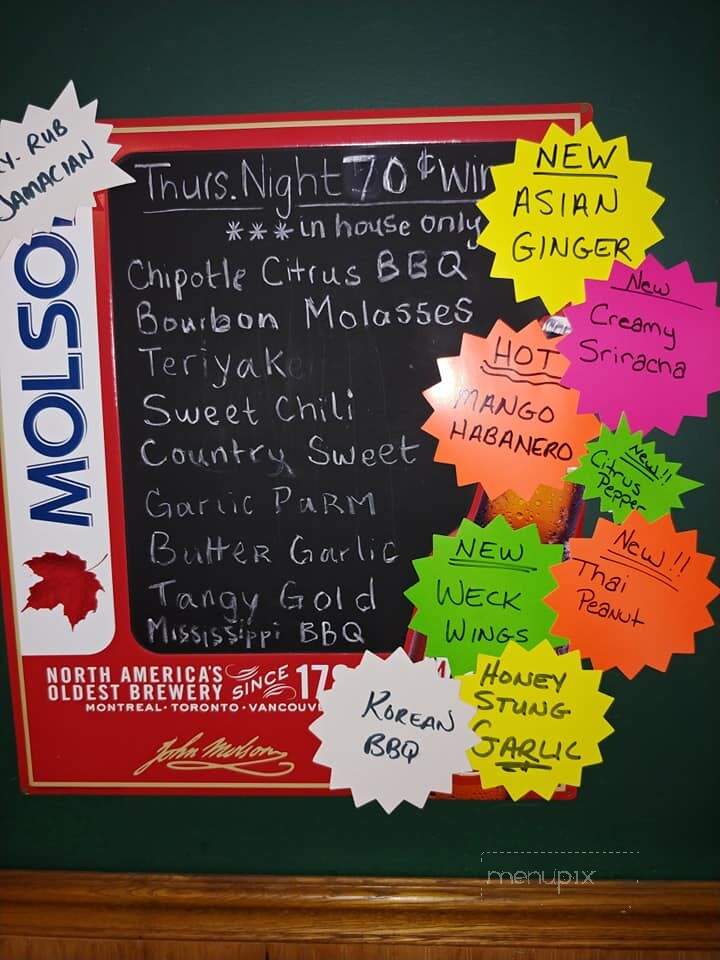 Y-RUB
JAMACIAN
MOLSO
Thurs. Night 70¢ Win
*** in house only
Chipotle Citrus BBQ
Bourbon Molasses
Teriyak
Sweet Chili
Country Sweet
Garlic PaRM
Butter Garlic
Tangy Gold
Mississippi BBQ
NEW
ASIAN
GINGER
New
Creamy
Sriracha
HOT
MANGO
HABANERO
New!!
Citrus
Pepper
NEW
WECK
WINGS
New!!
Thai
Peanut
KOREAN
BBQ
HONEY
STUNG
GARLIC
NORTH AMERICA'S
OLDEST BREWERY SINCE 17
MONTREAL · TORONTO · VANCOUV
John Molson
menupix